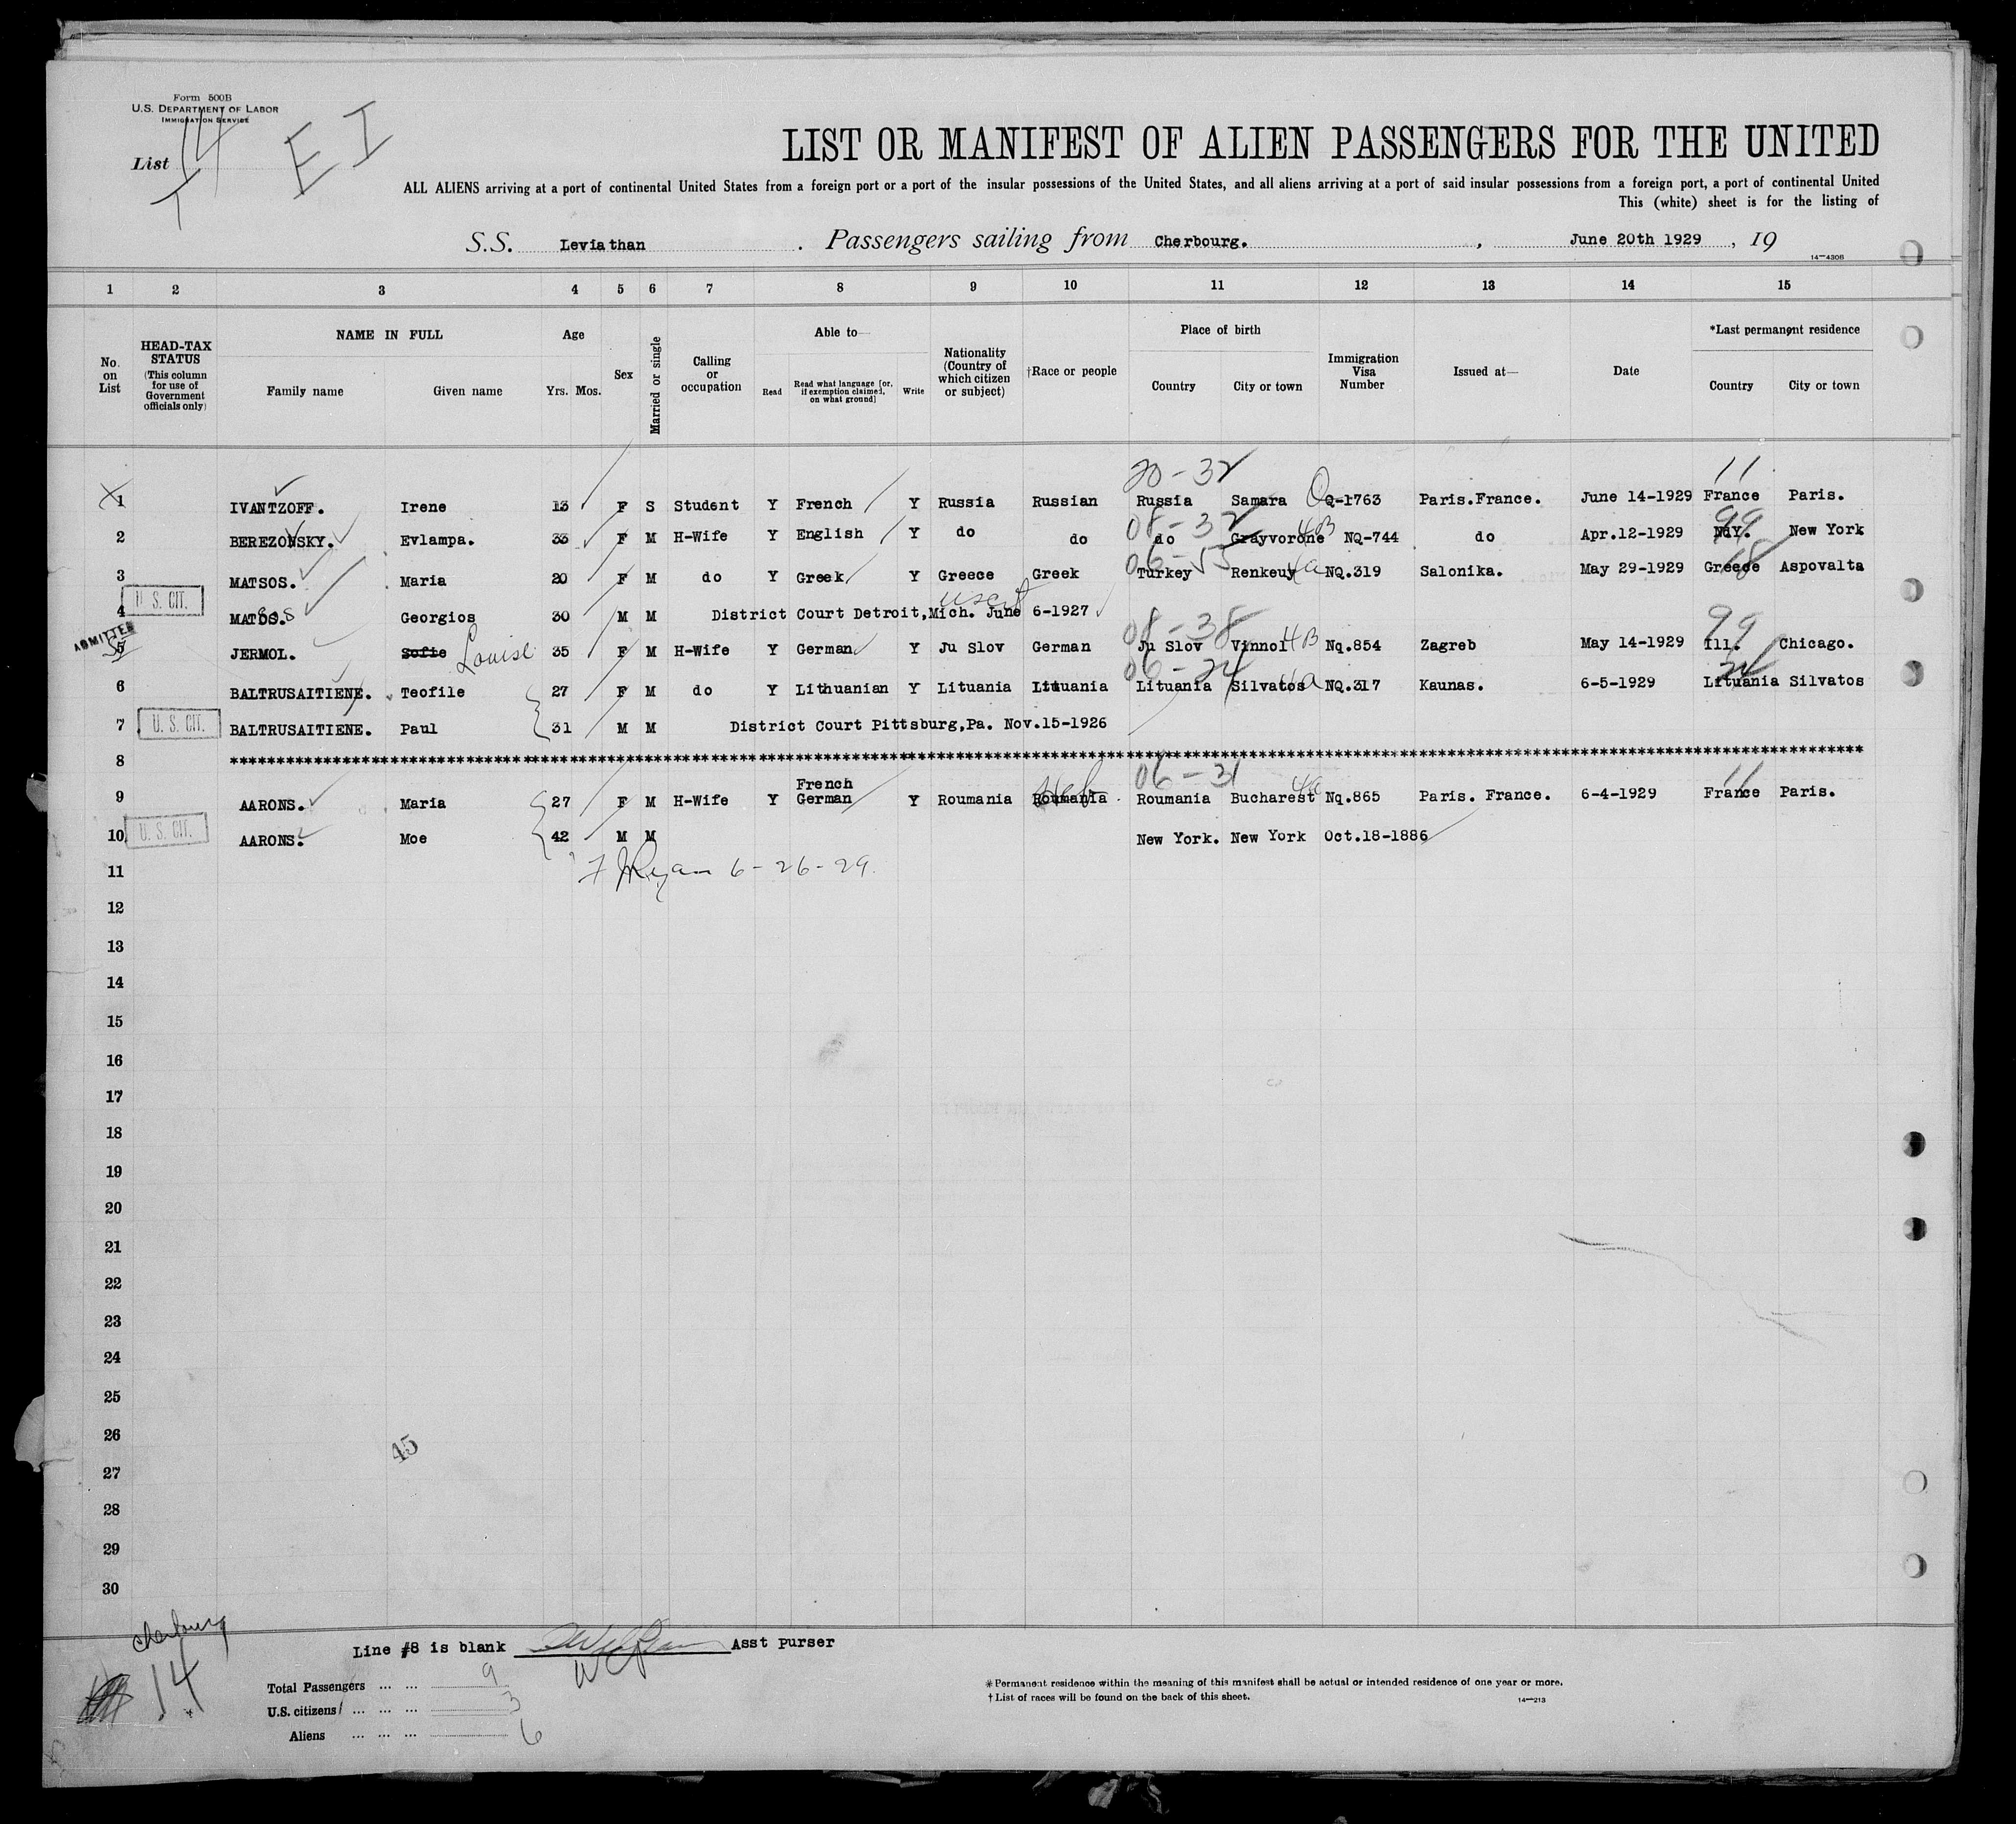 Form 500B
U.S. DEPARTMENT OF LABOR
IMMIGRATION SERVICE
List 14
E I
LIST OR MANIFEST OF ALIEN PASSENGERS FOR THE UNITED
ALL ALIENS arriving at a port of continental United States from a foreign port or a port of the insular possessions of the United States, and all aliens arriving at a port of said insular possessions from a foreign port, a port of continental United
This (white) sheet is for the listing of
S.S. Leviathan . Passengers sailing from Cherbourg. , June 20th 1929 , 19
14—430B
1 2 3 4 5 6 7 8 9 10 11 12 13 14 15
No. on List
HEAD-TAX STATUS (This column for use of Government officials only)
NAME IN FULL Family name Given name
Age Yrs. Mos.
Sex
Married or single
Calling or occupation
Able to— Read Read what language [or, if exemption claimed, on what ground] Write
Nationality (Country of which citizen or subject)
†Race or people
Place of birth Country City or town
Immigration Visa Number
Issued at—
Date
*Last permanent residence Country City or town
20-32 11
1 IVANTZOFF. Irene 13 F S Student Y French Y Russia Russian Russia Samara Q-1763 Paris.France. June 14-1929 France Paris.
08-32 4B 99
2 BEREZONSKY. Evlampa. 33 F M H-Wife Y English Y do do do Grayvorone NQ-744 do Apr.12-1929 New York
06-53 4a 18
3 MATSOS. Maria 20 F M do Y Greek Y Greece Greek Turkey Renkeuy NQ.319 Salonika. May 29-1929 Greece Aspovalta
U.S. CIT.
uscit
4 MATOS. Georgios 30 M M District Court Detroit,Mich. June 6-1927
ADMITTED
08-38 4B 99
5 JERMOL. Sofie Louise 35 F M H-Wife Y German Y Ju Slov German Ju Slov Nq.854 Zagreb May 14-1929 Ill. Chicago.
06-24 4a 24
6 BALTRUSAITIENE. Teofile 27 F M do Y Lithuanian Y Lituania Lituania Lituania Silvatos NQ.317 Kaunas. 6-5-1929 Lituania Silvatos
U.S. CIT.
7 BALTRUSAITIENE. Paul 31 M M District Court Pittsburg,Pa. Nov.15-1926
8
06-31 4a 11
9 AARONS. Maria 27 F M H-Wife Y French German Y Roumania Roumania Heb. Roumania Bucharest Nq.865 Paris. France. 6-4-1929 France Paris.
U.S. CIT.
10 AARONS. Moe 42 M M New York. New York Oct.18-1886
11 Ryan 6-26-29.
12
13
14
15
16
17
18
19
20
21
22
23
24
25
26
45
27
28
29
30
Cherbourg
14
Line #8 is blank Asst purser
Total Passengers ... ... 9
U.S. citizens ... ... ... 3
Aliens ... ... ... 6
*Permanent residence within the meaning of this manifest shall be actual or intended residence of one year or more.
†List of races will be found on the back of this sheet.
14—213